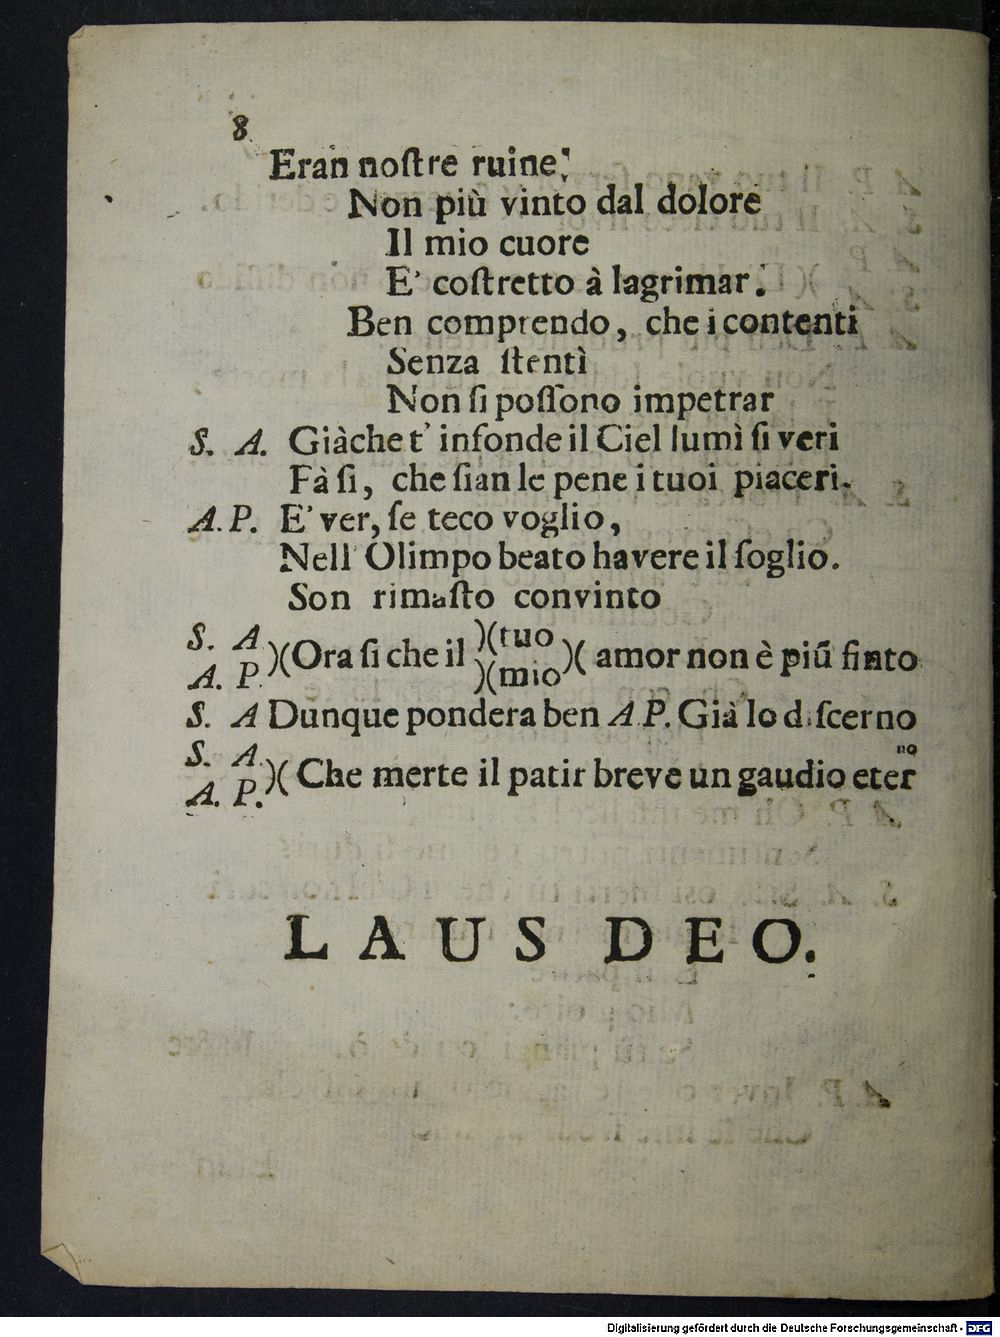 8
Eran noſtre ruine;
Non più vinto dal dolore
Il mio cuore
E' coſtretto à lagrimar.
Ben comprendo, che i contenti
Senza ſtentì
Non ſi poſſono impetrar
S. A. Giàche t' infonde il Ciel lumì ſi veri
Fà ſi, che ſian le pene i tuoi piaceri.
A. P. E' ver, ſe teco voglio,
Nell' Olimpo beato havere il ſoglio.
Son rimaſto convinto
S. A
A. P. )( Ora ſi che il )(tuo
)(mio )( amor non è piũ finto
S. A Dunque pondera ben A. P. Già lo diſcerno
S. A.
A. P. )( Che merte il patir breve un gaudio eter
no
LAUS DEO.
Digitalisierung gefördert durch die Deutsche Forschungsgemeinschaft - DFG